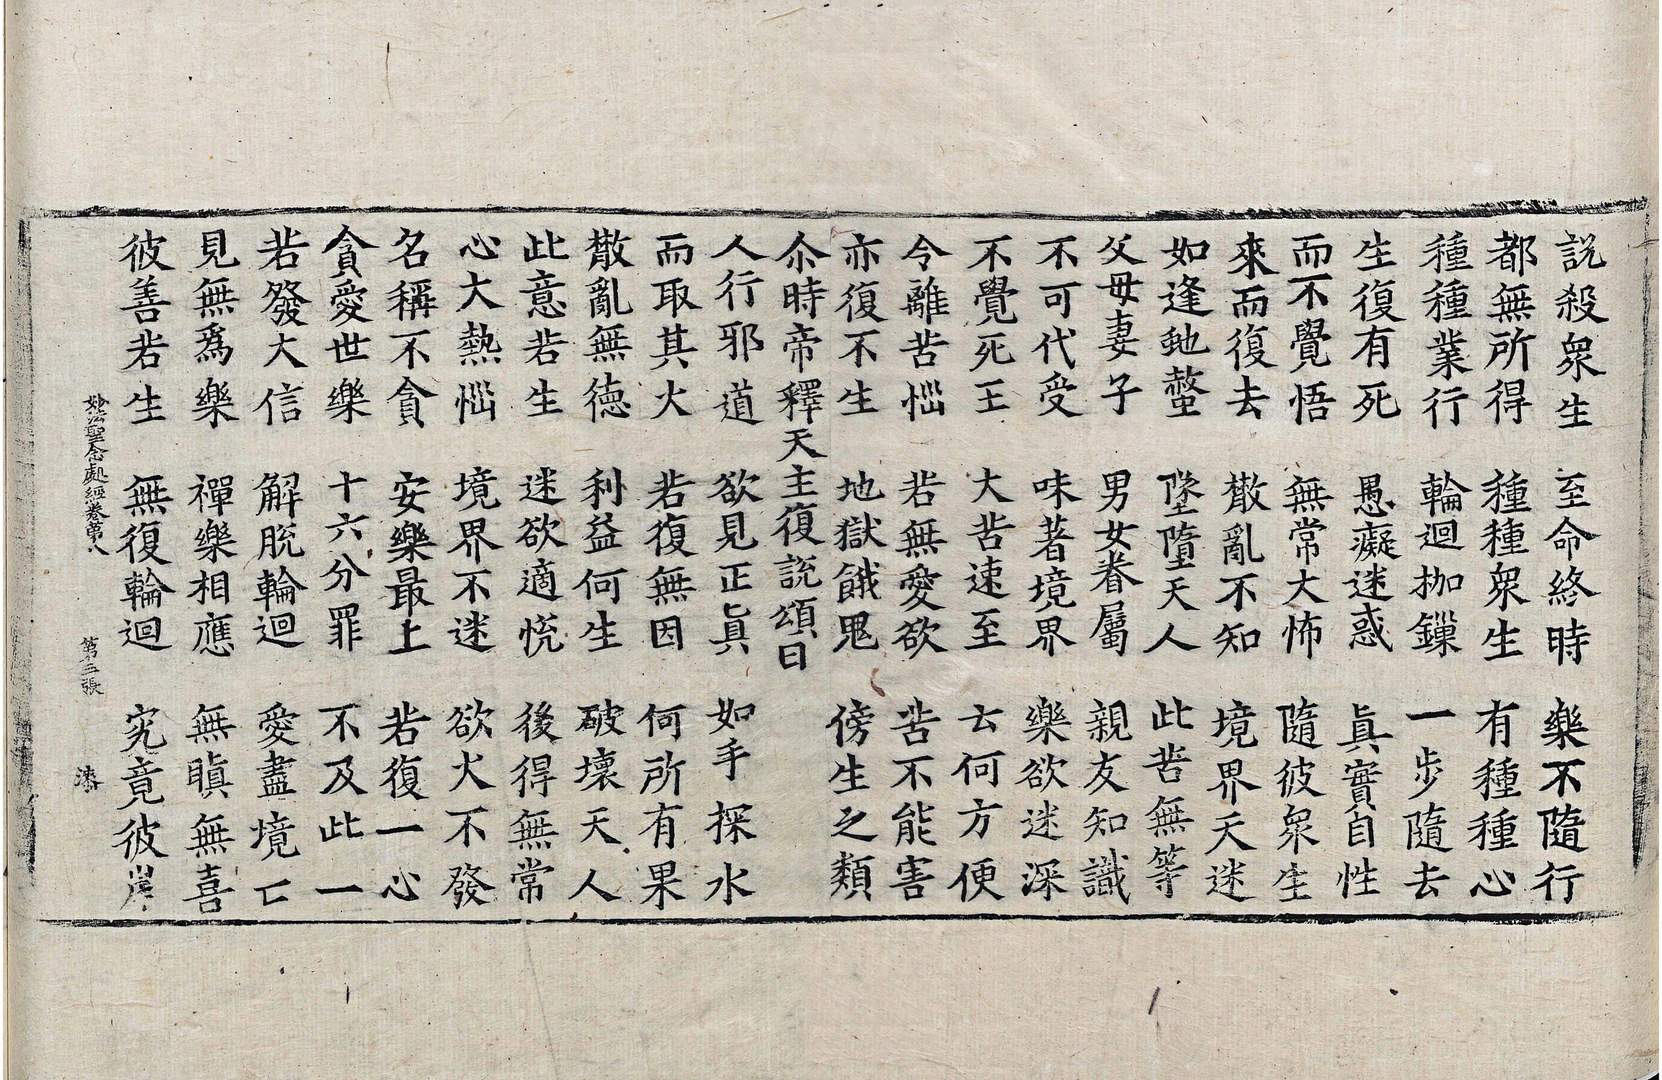 説殺衆生　至命終時　樂不隨行
都無所得　種種衆生　有種種心
種種業行　輪迴枷鏁　一步隨去
生復有死　愚癡迷惑　眞實自性
而不覺悟　無常大怖　隨彼衆生
來而復去　散亂不知　境界天迷
如逢虵螫　墜墮天人　此苦無等
父母妻子　男女眷屬　親友知識
不可代受　味著境界　樂欲迷深
不覺死王　大苦速至　云何方便
令離苦惱　若無愛欲　苦不能害
亦復不生　地獄餓鬼　傍生之類
尒時帝釋天主復說頌曰
人行邪道　欲見正眞　如手探水
而取其火　若復無因　何所有果
散亂無德　利益何生　破壞天人
此意若生　迷欲適恱　後得無常
心大熱惱　境界不迷　欲火不發
名稱不貪　安樂最上　若復一心
貪愛世樂　十六分罪　不及此一
若發大信　解脫輪迴　愛盡境亡
見無爲樂　禪樂相應　無瞋無喜
彼善若生　無復輪迴　究竟彼岸
妙法聖念處經卷第八　第三張　漆